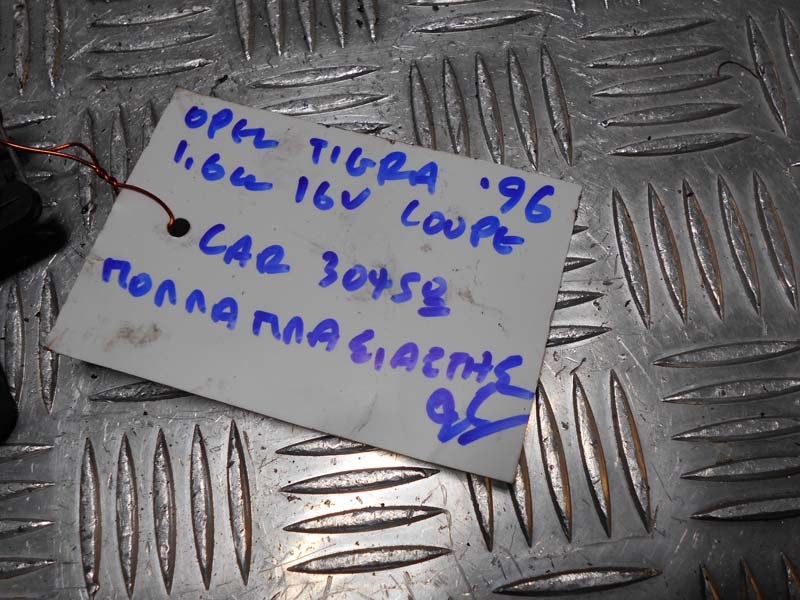 OPEL TIGRA '96
1.6cc 16V COUPE
CAR 30450
ΠΟΛΛΑΠΛΑΣΙΑΣΤΗΣ